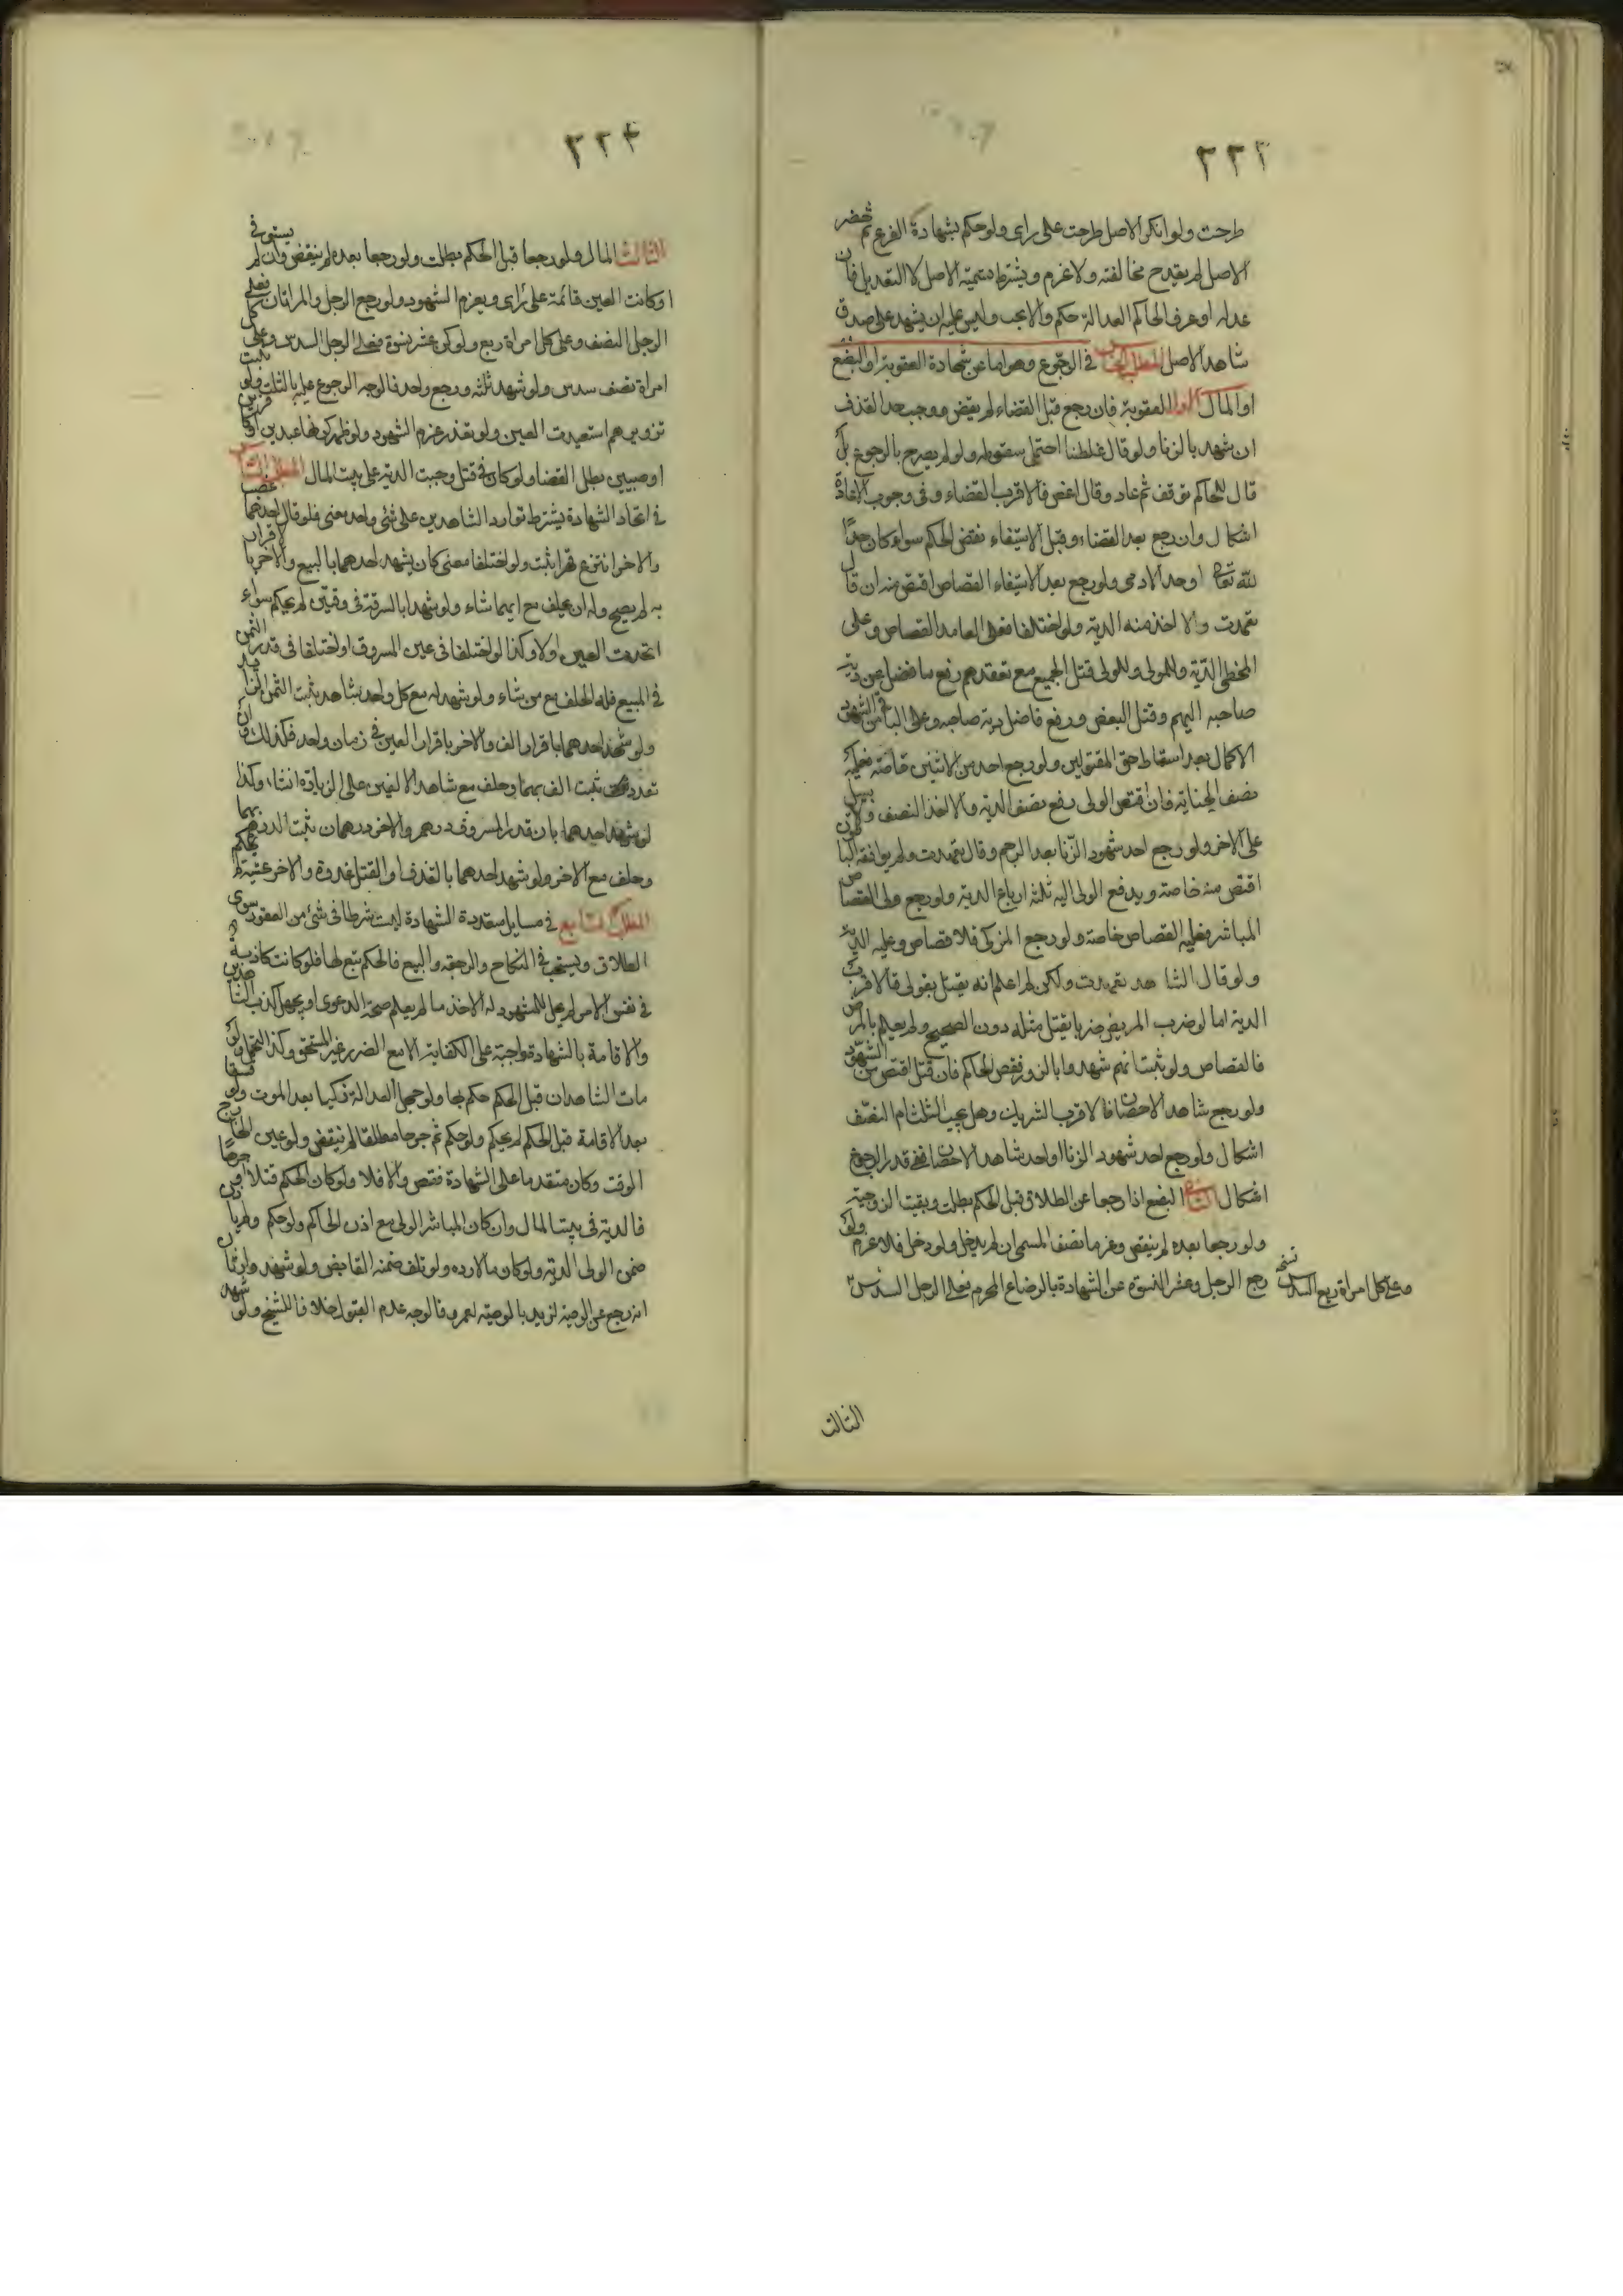 ٢٢٣
طرحت ولو انكر الاصل طرحت على راى ولو حكم بشهادة الفرع ثم حضر
الاصل لم يقدح مخالفته ولا غرم ويشترط تسمية الاصل لا التعديل فان
عدله او عرف الحاكم العدالة حكم والا بحث وليس عليه ان يشهد على صدق
شاهد الاصل المطلب الخامس في الرجوع وهو اما عن شهادة العقوبة او البضع
او المال الاول العقوبة فان رجع قبل القضاء لم يقض ووجب حد القذف
ان شهد بالزنا ولو قال غلطنا احتمل سقوطه ولو لم يصرح بالرجوع بل
قال للحاكم توقف ثم عاد وقال اقض فالاقرب القضاء وفى وجوب الاعادة
اشكال وان رجع بعد القضاء وقبل الاستيفاء نقض الحكم سواء كان حدا
لله تعالى او حد الادمى ولو رجع بعد الاستيفاء القصاص اقتص منه ان قال
تعمدت والا اخذ منه الدية ولو اختلفا فعلى العامد القصاص وعلى
المخطى الدية وللمولى وللولى قتل الجميع مع تعمدهم ودفع ما فضل عن دية
صاحبه اليهم وقتل البعض ودفع فاضل دية صاحبه وعلى الباقى من الشهود
الاكمال بعد اسقاط حق المقتولين ولو رجع احد من الاثنين خاصة فعليه
نصف الجناية فان اقتص الولى دفع نصف الدية والا اخذ النصف ولا سبيل
على الاخر ولو رجع احد شهود الزنا بعد الرجم وقال تعمدت ولم يوافقه الباقون
اقتص منه خاصة ويدفع الولى اليه ثلثة ارباع الدية ولو رجع ولى القصاص
المباشر فعليه القصاص خاصة ولو رجع المزكى فلا قصاص وعليه الدية
ولو قال الشاهد تعمدت ولكن لم اعلم انه يقتل بقولى فالاقرب
الدية اما لو ضرب المريض ضربا يقتل مثله دون الصحيح ولم يعلم بالمرض
فالقصاص ولو ثبت انهم شهدوا بالزور نقض الحاكم فان قتل اقتص من الشهود
ولو رجع شاهد الاحصان فالاقرب التشريك وهل يجب الثلث ام النصف
اشكال ولو رجع احد شهود الزنا واحد شاهد الاحصان ففى قدر الرجوع
اشكال الثانى البضع اذا رجعا عن الطلاق قبل الحكم بطلت وبقيت الزوجية
ولو رجعا بعده لم ينقض وغرما نصف المسمى ان لم يدخل ولو دخل فلا غرم ولو
رجع الرجل وعشر النسوة عن الشهادة بالرضاع المحرم فعلى الرجل السدس
وعلى كل امراة ربع السدس نسخه
الثالث
٢٢٤
الثالث المال ولو رجعا قبل الحكم بطلت ولو رجعا بعده لم ينقض وان لم يستوفى
او كانت العين قائمة على راى ويغرم الشهود ولو رجع الرجل والمراتان فعلى
الرجل النصف وعلى كل امراة ربع ولو كن عشر نسوة فعلى الرجل السدس وعلى كل
امراة نصف سدس ولو شهد ثلثة ورجع واحد فالوجه الرجوع عليه بالثلث ولو ثبت
تزويرهم استعيدت العين ولو تعذر غرم الشهود ولو ظهر كونهما عبدين او كافرين
او صبيين بطل القضا ولو كان فى قتل وجبت الدية على بيت المال المطلب السادس
فى اتحاد الشهادة يشترط توارد الشاهدين على شئ واحد معنى فلو قال احدهما غصب
والاخر انتزع قهرا ثبت ولو اختلفا معنى كان يشهد احدهما بالبيع والاخر بالاقرار
به لم يصح وله ان يحلف مع ايهما شاء ولو شهدا بالسرقة فى وقتين لم يحكم سواء
اتحدت العين اولا وكذا لو اختلفا فى عين المسروق او اختلفا فى قدر الثمن
فى المبيع فله الحلف مع من شاء ولو شهد له مع كل واحد شاهد ثبت الثمن الزايد
ولو شهد احدهما باقرار الف والاخر باقرار الفين فى زمان واحد فكذلك وان
تعدد ثبت الف بهما وحلف مع شاهد الالفين على الزيادة ان شاء وكذا
لو شهد احدهما بان قدر المسروق درهم والاخر درهمان ثبت الدرهم بهما
وحلف مع الاخر ولو شهد احدهما بالقذف او القتل غدوة والاخر عشية لم يحكم
المطلب السابع فى مسايل متعددة الشهادة ليست شرطا فى شئ من العقود سوى
الطلاق ويستحب فى النكاح والرجعة والبيع فالحكم تبع لها فلو كانت كاذبة
فى نفس الامر لم يحل للمشهود له الاخذ ما لم يعلم صحة الدعوى او يجهل كذب الشاهدين
والاقامة بالشهادة واجبة على الكفاية الا مع الضرر غير المستحق وكذا التحمل ولو
مات الشاهدان قبل الحكم حكم بها ولو جهل العدالة زكيا بعد الموت ولو فسقا
بعد الاقامة قبل الحكم لم يحكم ولو حكم ثم جرحا مطلقا لم ينقض ولو عين الجارح
الوقت وكان متقدما على الشهادة نقض والا فلا ولو كان الحكم قتلا او جرحا
فالدية فى بيت المال وان كان المباشر الولى مع اذن الحاكم ولو حكم ولم ياذن
ضمن الولى الدية ولو كان مالا رده ولو تلف ضمنه القابض ولو شهد وارثا
انه رجع عن الوصية لزيد بالوصية لعمرو فالوجه عدم القبول خلافا للشيخ ولو شهد